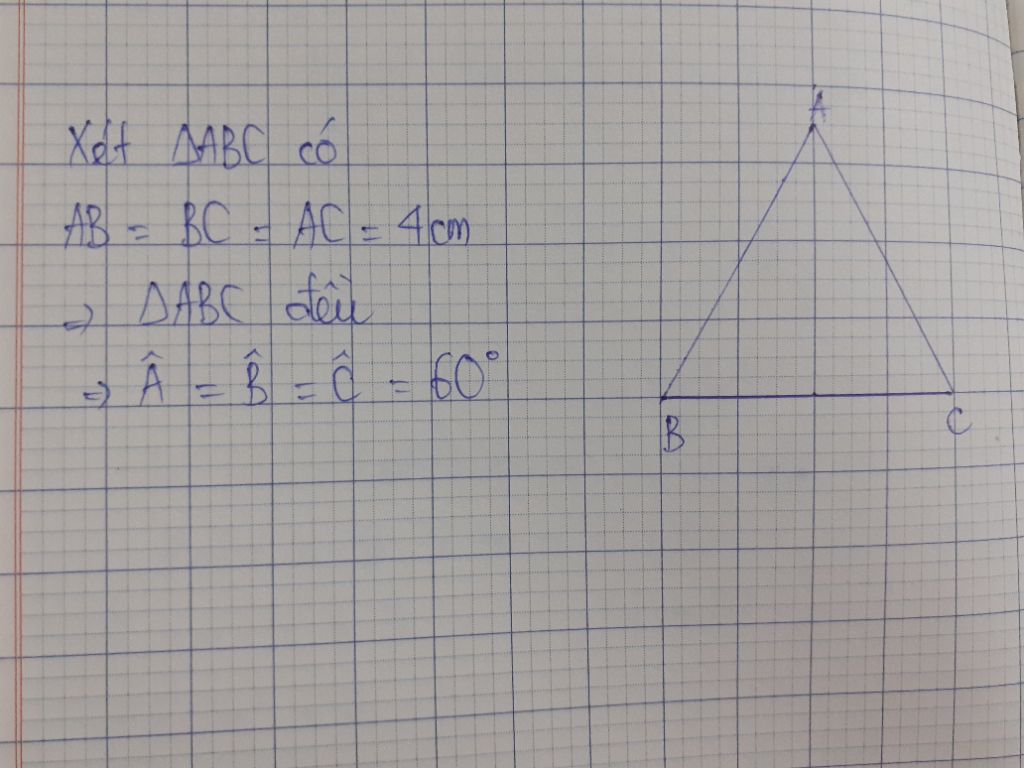 Xét ΔABC có
AB = BC = AC = 4cm
=> ΔABC đều
=> Â = B̂ = Ĉ = 60°
A
B
C